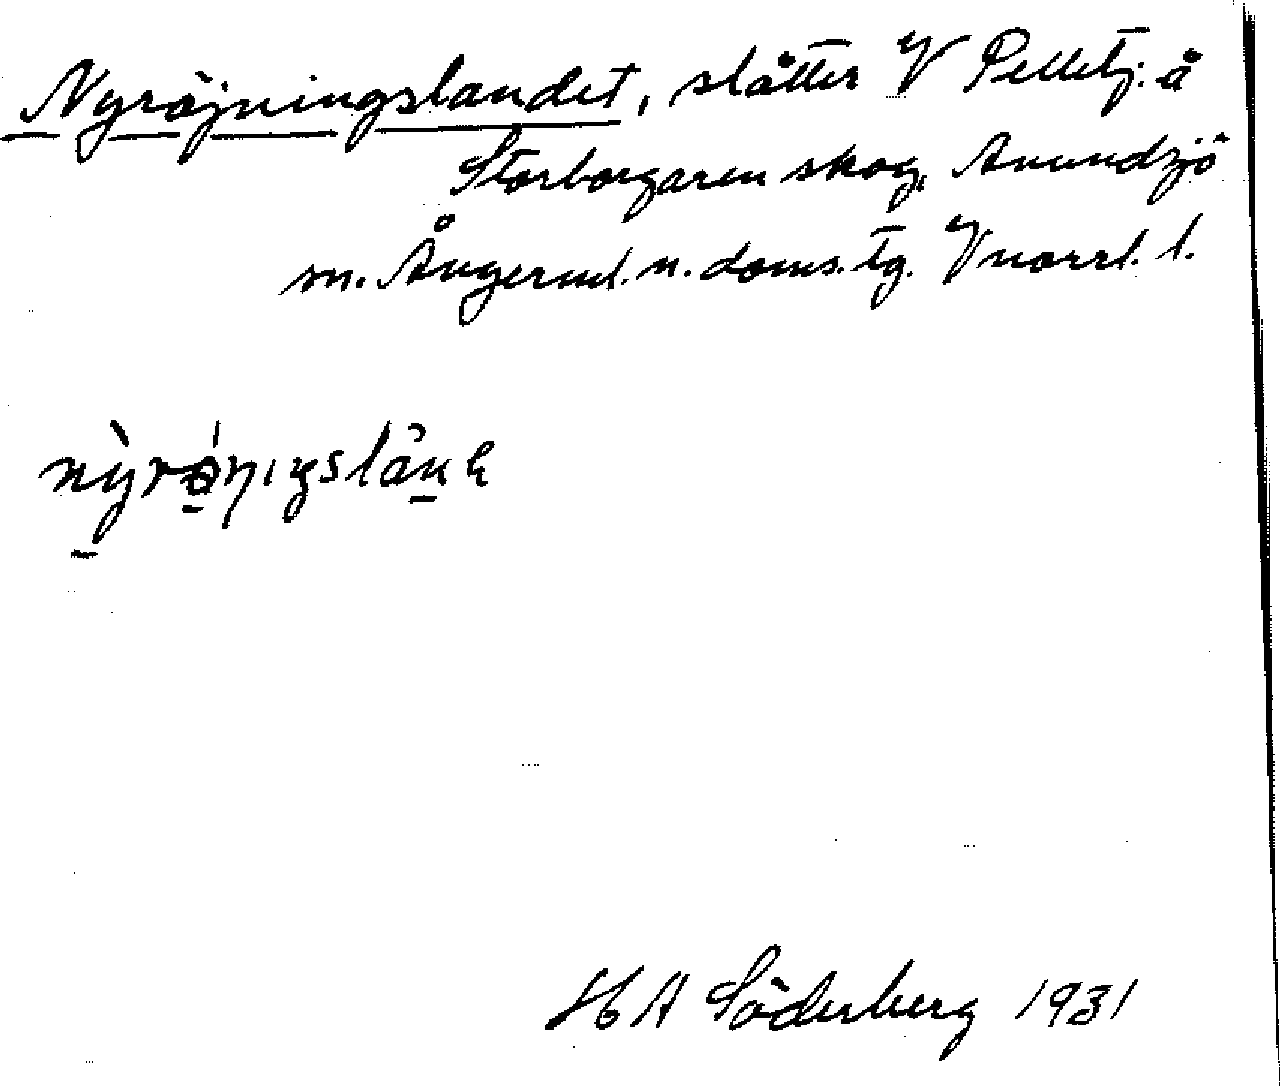 Nyröjningslandet, slåtter V Pelletj. å
Storborgaren skog, Anundsjö
sn. Ångerml. n. doms. tg. Vnorrl. l.
H A Söderberg 1931